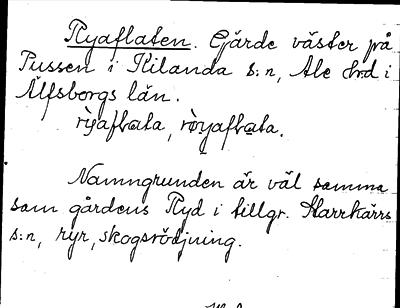 Ryaflaten. Gärde väster på
Pussen i Kilanda s:n, Ale hrd i
Älfsborgs län.
rỳaflata, ròyaflata.
Namngrunden är väl samma
som gårdens Ryd i tillgr. Harrkärrs
s:n, ryr, skogsrödjning.